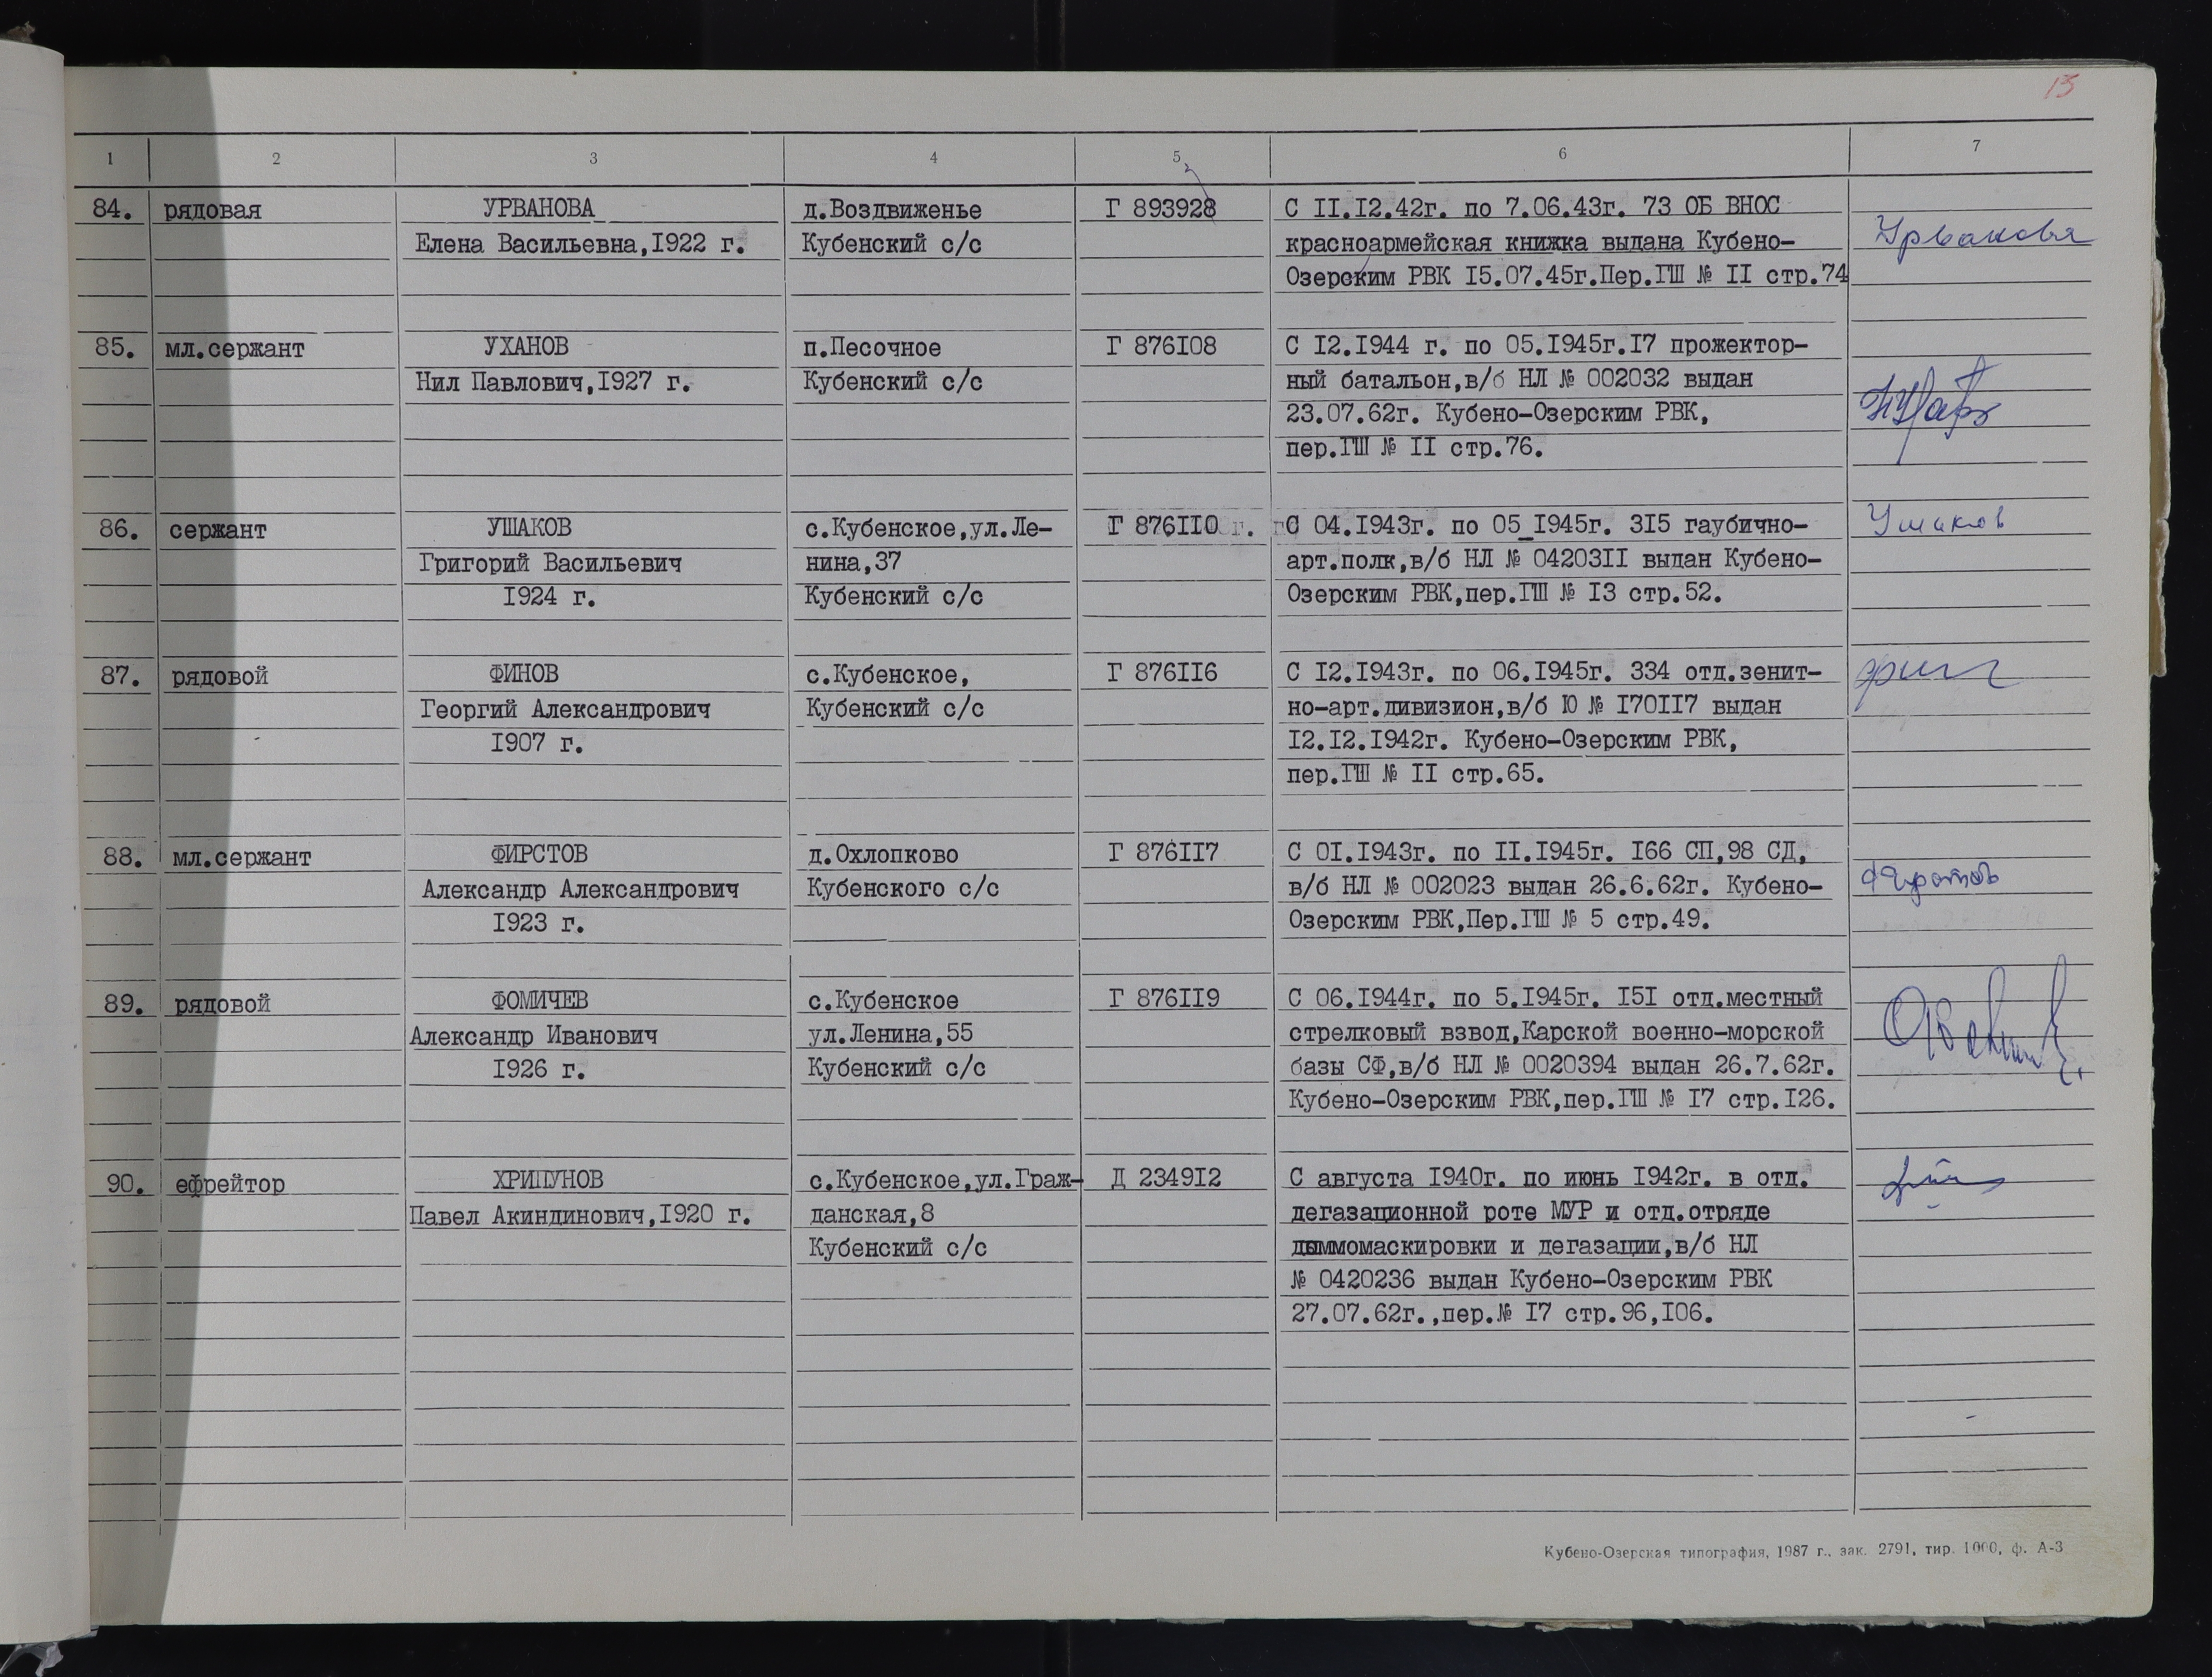 15
1 2 3 4 5 6 7
84. рядовая УРВАНОВА д.Воздвиженье Г 893928 С II.I2.42г. по 7.06.43г. 73 ОБ ВНОС
Елена Васильевна,I922 г. Кубенский с/с красноармейская книжка выдана Кубено- Урванова
Озерским РВК I5.07.45г.Пер.ГШ № II стр.74
85. мл.сержант УХАНОВ п.Песочное Г 876I08 С I2.I944 г. по 05.I945г.I7 прожектор-
Нил Павлович,I927 г. Кубенский с/с ный батальон,в/б НЛ № 002032 выдан
23.07.62г. Кубено-Озерским РВК,
пер.ГШ № II стр.76.
86. сержант УШАКОВ с.Кубенское,ул.Ле- Г 876II0 С 04.I943г. по 05 I945г. 3I5 гаубично- Ушаков
Григорий Васильевич нина,37 арт.полк,в/б НЛ № 04203II выдан Кубено-
I924 г. Кубенский с/с Озерским РВК,пер.ГШ № I3 стр.52.
87. рядовой ФИНОВ с.Кубенское, Г 876II6 С I2.I943г. по 06.I945г. 334 отд.зенит-
Георгий Александрович Кубенский с/с но-арт.дивизион,в/б Ю № I70II7 выдан
I907 г. I2.I2.I942г. Кубено-Озерским РВК,
пер.ГШ № II стр.65.
88. мл.сержант ФИРСТОВ д.Охлопково Г 876II7 С 0I.I943г. по II.I945г. I66 СП,98 СД,
Александр Александрович Кубенского с/с в/б НЛ № 002023 выдан 26.6.62г. Кубено-
I923 г. Озерским РВК,Пер.ГШ № 5 стр.49.
89. рядовой ФОМИЧЕВ с.Кубенское Г 876II9 С 06.I944г. по 5.I945г. I5I отд.местный
Александр Иванович ул.Ленина,55 стрелковый взвод,Карской военно-морской
I926 г. Кубенский с/с базы СФ,в/б НЛ № 0020394 выдан 26.7.62г.
Кубено-Озерским РВК,пер.ГШ № I7 стр.I26.
90. ефрейтор ХРИПУНОВ с.Кубенское,ул.Граж- Д 2349I2 С августа I940г. по июнь I942г. в отд.
Павел Акиндинович,I920 г. данская,8 дегазационной роте МУР и отд.отряде
Кубенский с/с дыммомаскировки и дегазации,в/б НЛ
№ 0420236 выдан Кубено-Озерским РВК
27.07.62г.,пер.№ I7 стр.96,I06.
Кубено-Озерская типография, 1987 г., зак. 2791, тир. 1000, ф. А-3